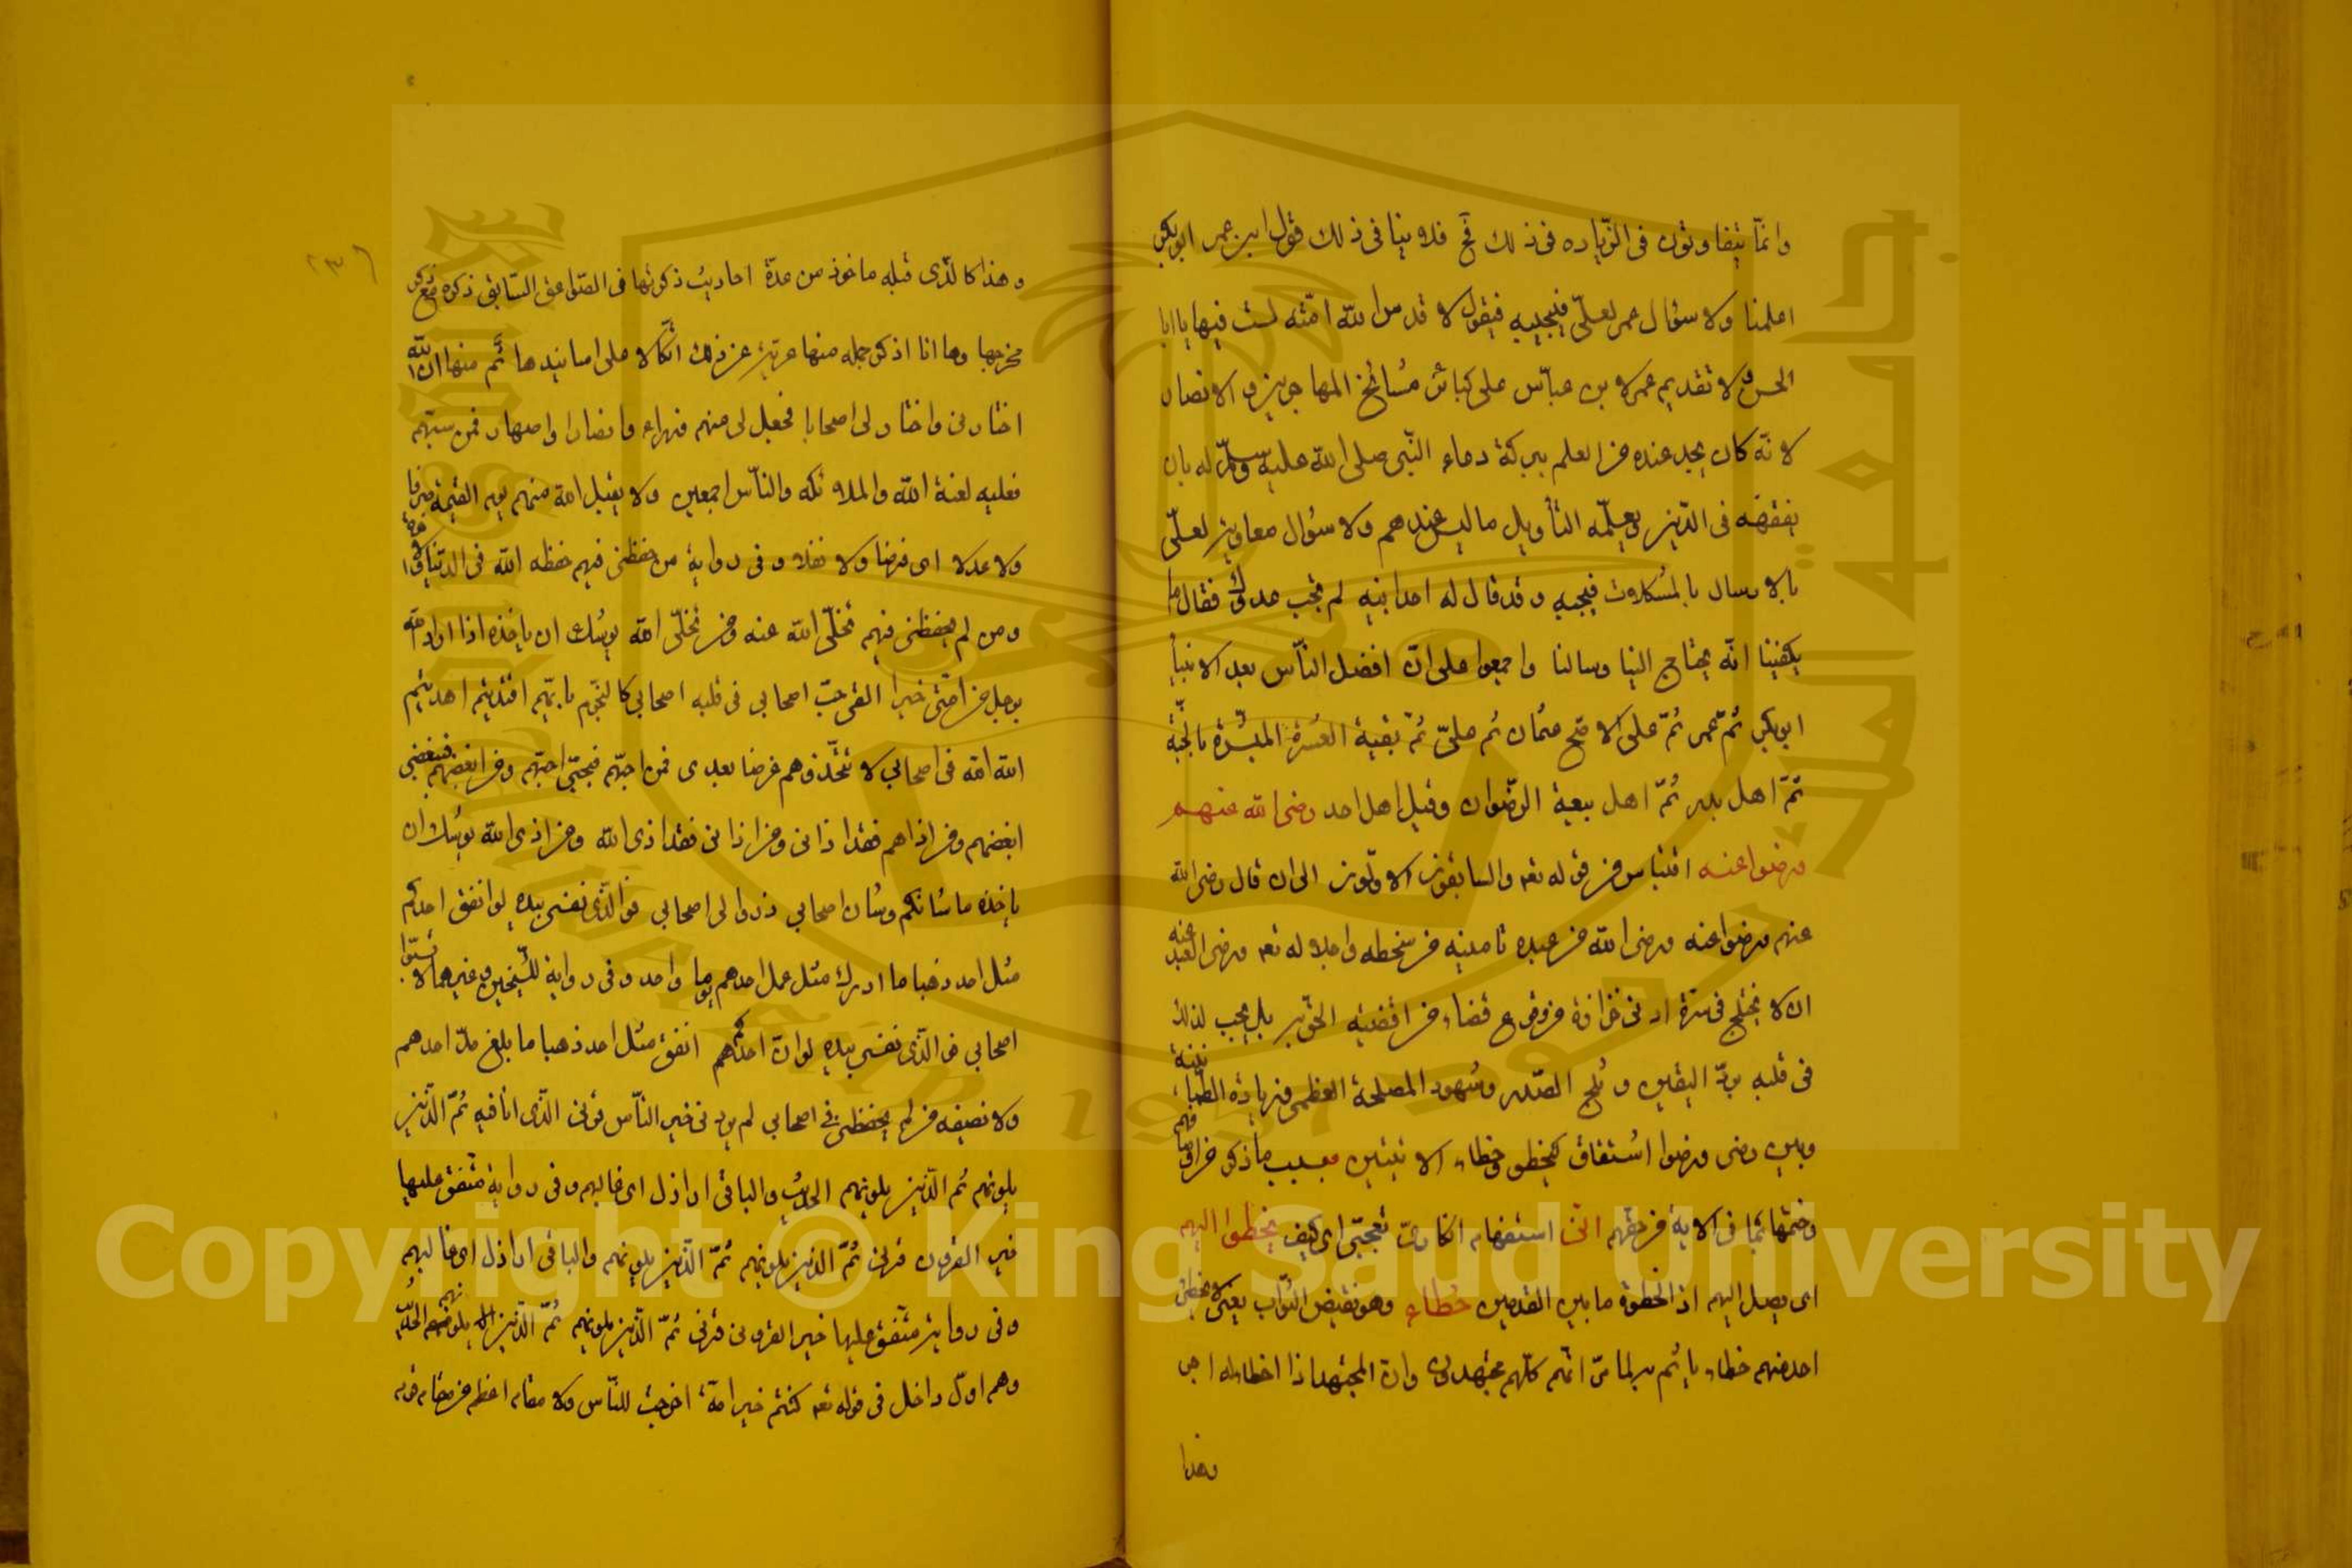 وانما يتفاوتون في الزيادة في ذلك فح فلا ينافي ذلك قول ابن عمر ابو بكر
اعلمنا ولا سؤال عمر لعلي فيجيبه فيقول لا قدس الله امة لست فيها يا ابا
الحسن ولا تقديم عمر لابن عباس على كبائر مشائخ المهاجرين والانصار
لانه كان يجد عنده من العلم ببركة دعاء النبي صلى الله عليه وسلم له بان
يفقهه في الدين ويعلمه التأويل ما ليس عندهم ولا سؤال معاوية لعلي
بالارسال بالمشكلات فيجيبه وقد قال له احد بنيه لم تجب عدوك فقال اما
يكفينا انه يحتاج الينا وسالنا واجمعوا على ان افضل الناس بعد الانبياء
ابو بكر ثم عمر ثم على الاصح عثمان ثم علي ثم بقية العشرة المبشرة بالجنة
ثم اهل بدر ثم اهل بيعة الرضوان وقيل اهل احد رضي الله عنهم
ورضوا عنه اقتباس من قوله تعه والسابقون الاولون الى ان قال رضي الله
عنهم ورضوا عنه ورضى الله عن عبده تامينه من سخطه واحلاله تعه ورضى العبد عنه
ان لا يختلج في سره ادنى حزازة من وقوع قضاء من اقضية الحق بل يجب لذلك
في قلبه برد اليقين وثلج الصدر وشهود المصلحة العظمى وزيادة الطمأنينة
وبين رضى ورضوا اشتقاق كيخطو وخطاء الاتيين بسبب ما ذكر من اوصافهم
وختمها بما في الاية من حقهم انى استفهام انكاري تعجبي اى كيف يخطوا اليهم
اى يصل اليهم اذ الخطوة ما بين القدمين خطاء وهو نقيض الثواب يعنى لا يخطئ
احد منهم خطاء ياثم به لما مر انهم كلهم مجتهدون وان المجتهد اذا اخطا وله اجر
وهذا
٢٣٦
وهذا كالذى قبله ماخوذ من عدة احاديث ذكرتها في الصواعق السابق ذكره مع ذكر
مخرجها وها انا اذكر جملة منها عرية عن ذلك اتكالا على اسانيدها ثم منها ان الله
اختارنى واختار لى اصحابا فجعل لى منهم وزراء وانصارا واصهارا فمن سبهم
فعليه لعنة الله والملائكة والناس اجمعين ولا يقبل الله منهم يوم القيمة صرفا
ولا عدلا اى فرضا ولا نفلا وفى رواية من حفظنى فيهم حفظه الله فى الدنيا والاخرة
ومن لم يحفظنى فيهم تخلى الله عنه ومن تخلى الله يوشك ان ياخذه اذا اراد الله
برجل من امتى خيرا القى حب اصحابى فى قلبه اصحابى كالنجوم بايهم اقتديتم اهتديتم
الله الله فى اصحابى لا تتخذوهم غرضا بعدى فمن احبهم فبحبى احبهم ومن ابغضهم فببغضى
ابغضهم ومن اذاهم فقد اذانى ومن اذانى فقد اذى الله ومن اذى الله يوشك ان
ياخذه ما شانكم وشان اصحابى ذروا لى اصحابى فوالذى نفسى بيده لو انفق احدكم
مثل احد ذهبا ما ادرك مثل عمل احدهم يوما واحدا وفى رواية للشيخين وغيرهما لا تسبوا
اصحابى فوالذى نفسى بيده لو ان احدكم انفق مثل احد ذهبا ما بلغ مد احدهم
ولا نصيفه من لم يحفظنى فى اصحابى لم يرنى خير الناس قرنى الذى انا فيه ثم الذين
يلونهم ثم الذين يلونهم الحديث والباقى اراذل اى غالبهم وفى رواية متفق عليها
خير القرون قرنى ثم الذين يلونهم ثم الذين يلونهم والباقى اراذل اى غالبهم
وفى رواية متفق عليها خير القرون قرنى ثم الذين يلونهم ثم الذين يلونهم الحديث
وهم اول داخل فى قوله تعه كنتم خير امة اخرجت للناس ولا مقام اعظم من مقام قوم
Copyright © King Saud University